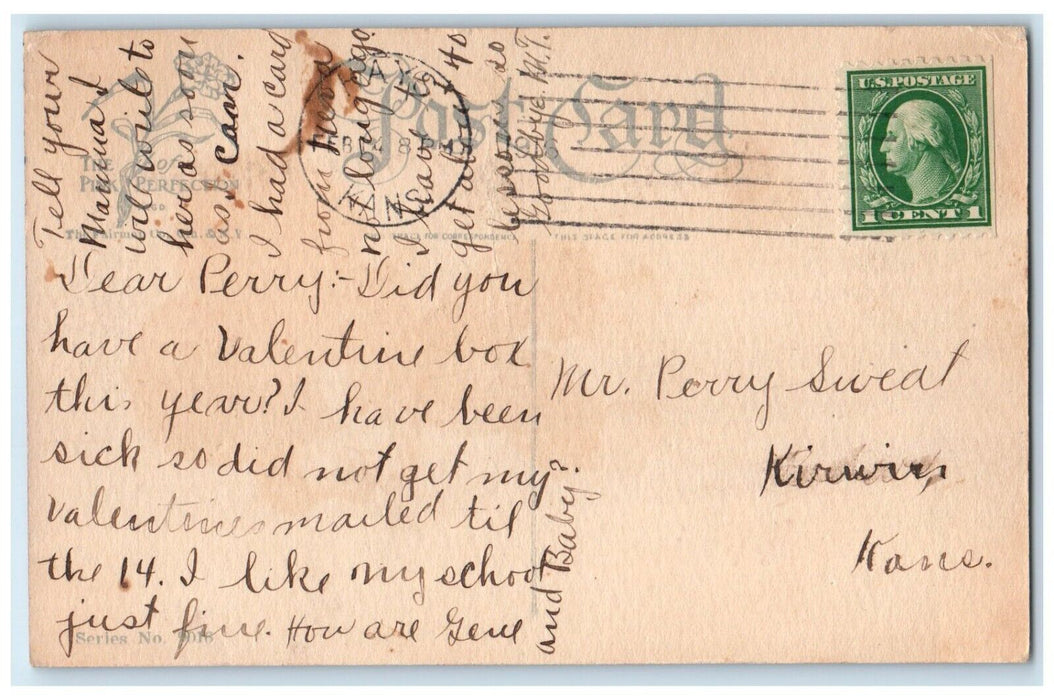 Post Card
THE PINK of PERFECTION
PLACE FOR CORRESPONDENCE
THIS SPACE FOR ADDRESS
U.S. POSTAGE
1 CENT 1
Dear Perry:- Did you
have a Valentine box
this year? I have been
sick so did not get my
Valentines mailed til
the 14. I like my school
just fine. How are Gene
and Baby?
Tell your
Mama I
will write to
her as soon
as I can.
I had a card
from
not long ago.
I have to
get about 40
lessons so
Goodbye. M.T.
Mr. Perry Sweat
Kirwin,
Kans.
Series No.